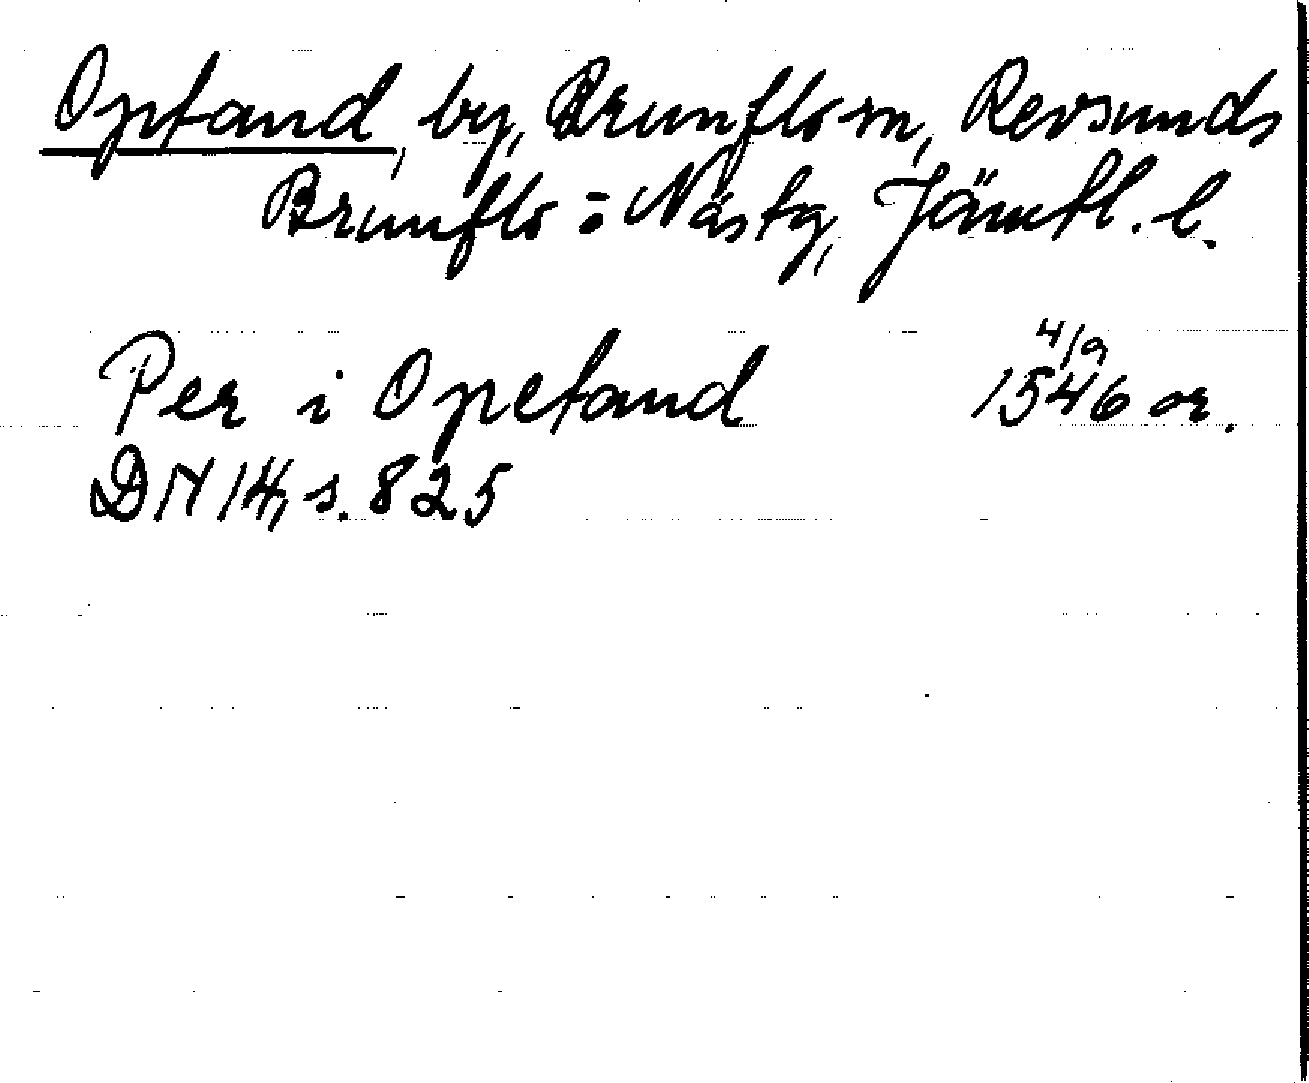 Optand, by, Brunflo sn, Revsunds
Brunflo o Näs tg, Jämtl. l.
Per i Opetand 4/9 1546 or.
DN 14, s. 825